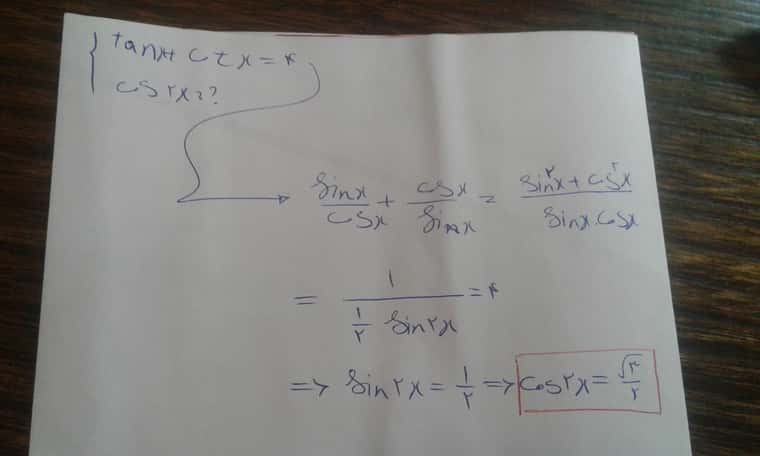 tanx+ctx=۴
cos ۲x=?
sinx/cosx + cosx/sinx = sin^۲x+cos^۲x/sinx.cosx
= ۱/(۱/۲ sin۲x) =۴
=> sin۲x = ۱/۲ => cos۲x = √۳/۲